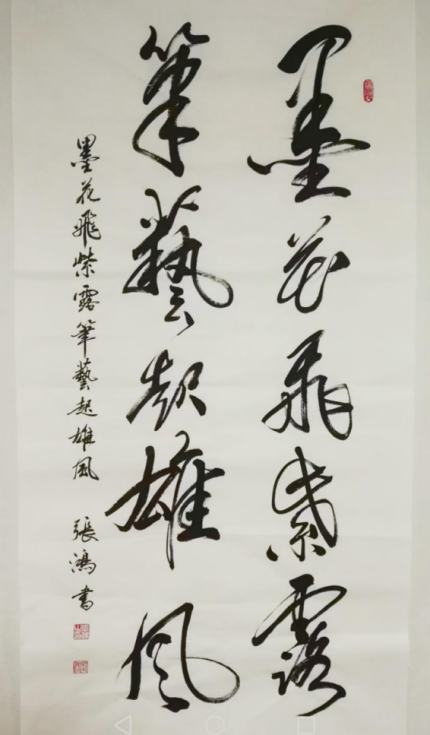 墨花飛紫露
筆藝起雄風
墨花飛紫露筆藝起雄風
張鴻書